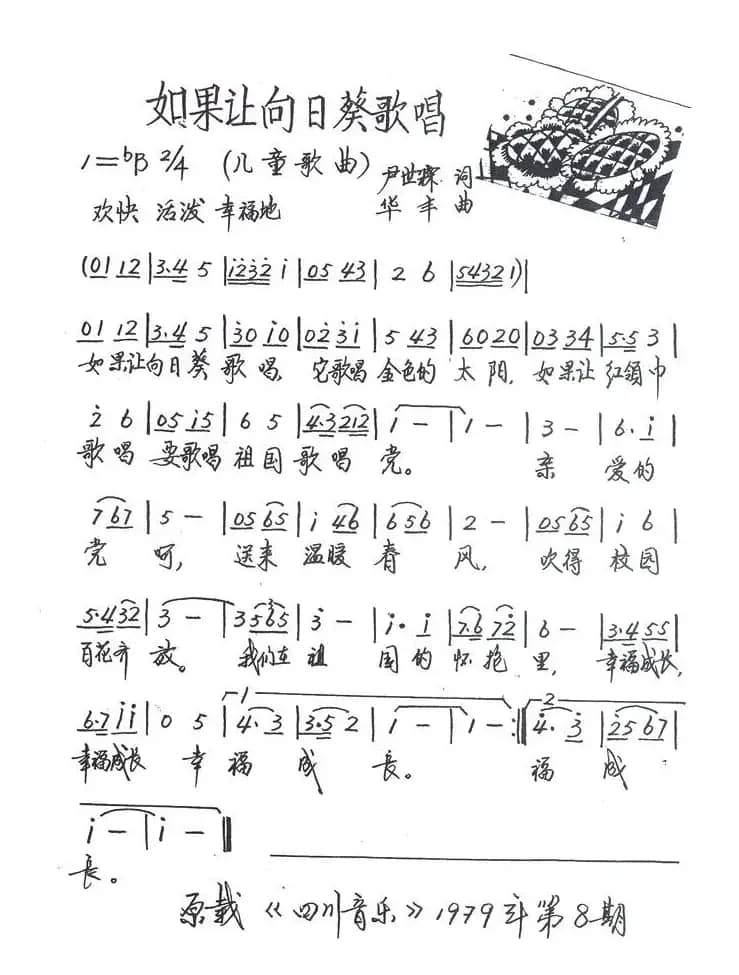 如果让向日葵歌唱
1=♭B 2/4 (儿童歌曲) 尹世霖 词
欢快 活泼 幸福地 华丰 曲
(01 12 | 3·4 5 | i232 i | 05 43 | 2 6 | 5432 1) |
01 12 | 3·4 5 | 30 i0 | 02 3i | 5 43 | 60 20 | 03 34 | 5·5 3 |
如果让向日葵歌唱, 它歌唱金色的太阳, 如果让红领巾
2 6 | 05 i5 | 6 5 | 4·3 212 | i – | i – | 3 – | 6· i |
歌唱 要歌唱祖国歌唱党。 亲爱的
7 67 | 5 – | 05 65 | i 46 | 6 56 | 2 – | 05 65 | i 6 |
党呵, 送来温暖春风, 吹得校园
5·4 32 | 3 – | 3 565 | 3 – | i· i | 7·6 72 | 6 – | 3·4 55 |
百花齐放。 我们在祖国的怀抱里, 幸福成长,
1 2
6·7 ii | 0 5 | 4· 3 | 3·5 2 | i – | i – :| 4· 3 | 25 67 |
幸福成长 幸福成长。 福成
i – | i – ||
长。
原载《四川音乐》1979年第8期